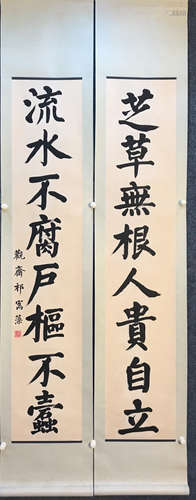 芝草無根人貴自立
流水不腐户樞不蠹
觀齋祁寯藻